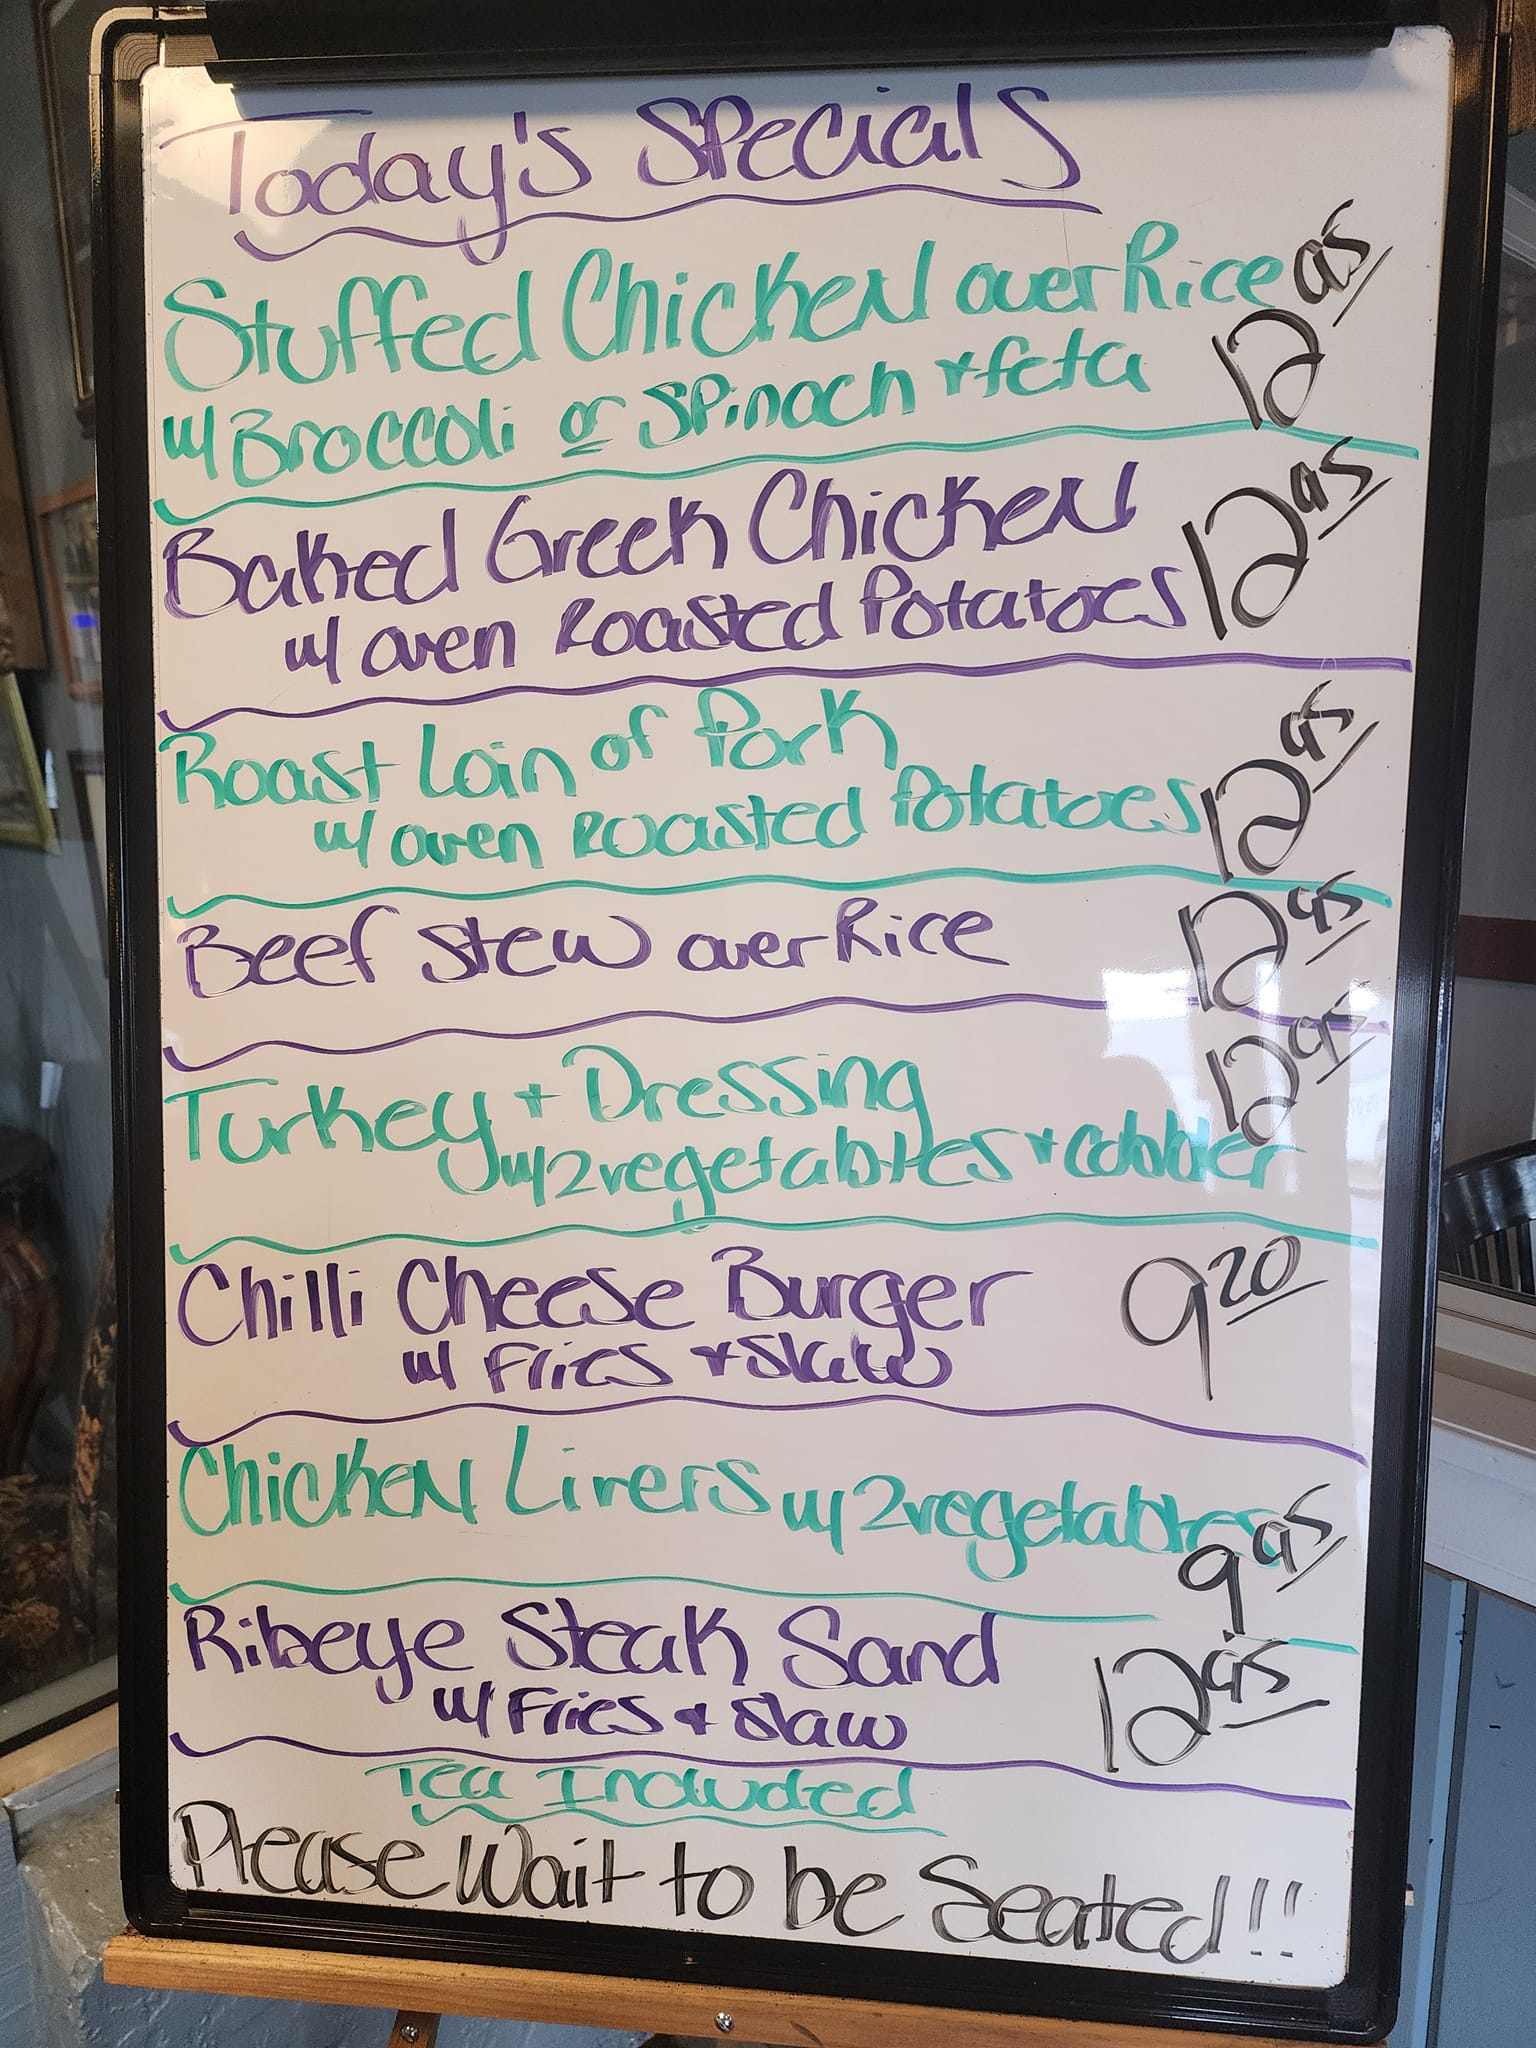 Today's Specials
Stuffed Chicken over Rice 12 95
w/ Broccoli or Spinach + feta
Baked Greek Chicken 12 95
w/ oven Roasted Potatoes
Roast Loin of Pork 12 95
w/ oven Roasted Potatoes
Beef Stew over Rice 12 95
Turkey + Dressing 12 95
w/ 2 vegetables + cobbler
Chilli Cheese Burger 9 20
w/ Fries + Slaw
Chicken Livers w/ 2 vegetables 9 95
Ribeye Steak Sand 12 95
w/ Fries + Slaw
Tea Included
Please Wait to be Seated!!!